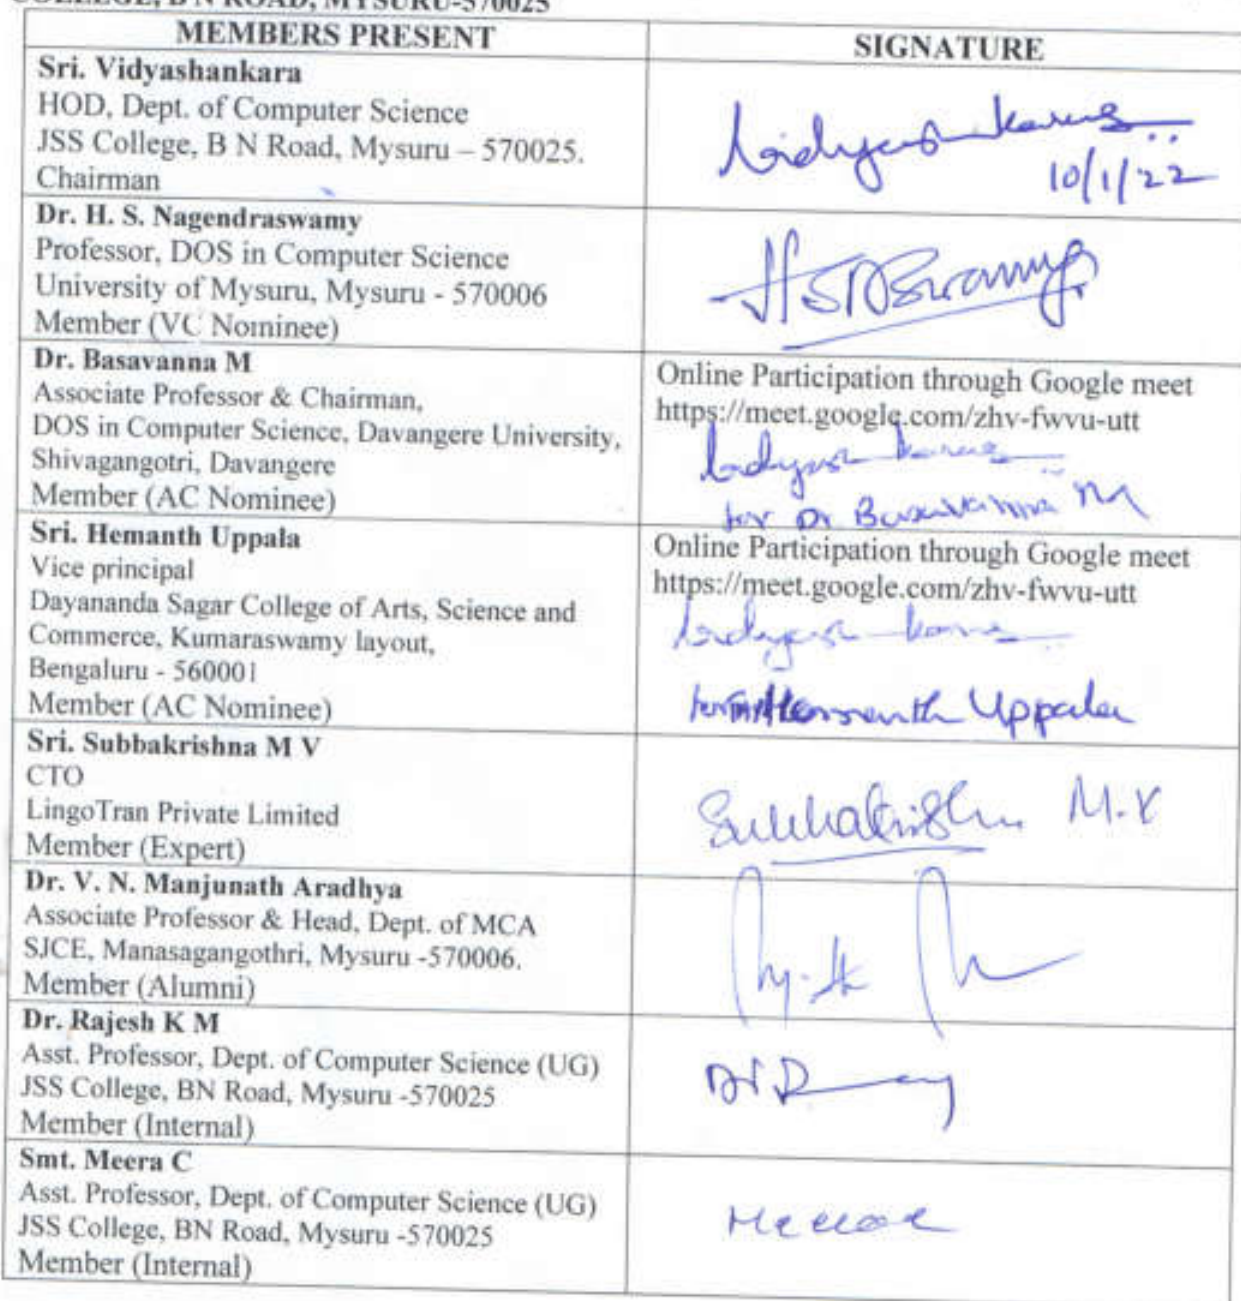 COLLEGE, B N ROAD, MYSURU-570025
MEMBERS PRESENT
SIGNATURE
Sri. Vidyashankara
HOD, Dept. of Computer Science
JSS College, B N Road, Mysuru – 570025.
Chairman
Vidyashankara
10/1/22
Dr. H. S. Nagendraswamy
Professor, DOS in Computer Science
University of Mysuru, Mysuru - 570006
Member (VC Nominee)
HSNSwamy
Dr. Basavanna M
Associate Professor & Chairman,
DOS in Computer Science, Davangere University,
Shivagangotri, Davangere
Member (AC Nominee)
Online Participation through Google meet
https://meet.google.com/zhv-fwvu-utt
Vidyashankara
for Dr Basavanna M
Sri. Hemanth Uppala
Vice principal
Dayananda Sagar College of Arts, Science and
Commerce, Kumaraswamy layout,
Bengaluru - 560001
Member (AC Nominee)
Online Participation through Google meet
https://meet.google.com/zhv-fwvu-utt
Vidyashankara
for Hemanth Uppala
Sri. Subbakrishna M V
CTO
LingoTran Private Limited
Member (Expert)
Subbakrishna M.V
Dr. V. N. Manjunath Aradhya
Associate Professor & Head, Dept. of MCA
SJCE, Manasagangothri, Mysuru -570006.
Member (Alumni)
Dr. Rajesh K M
Asst. Professor, Dept. of Computer Science (UG)
JSS College, BN Road, Mysuru -570025
Member (Internal)
Smt. Meera C
Asst. Professor, Dept. of Computer Science (UG)
JSS College, BN Road, Mysuru -570025
Member (Internal)
Meera C